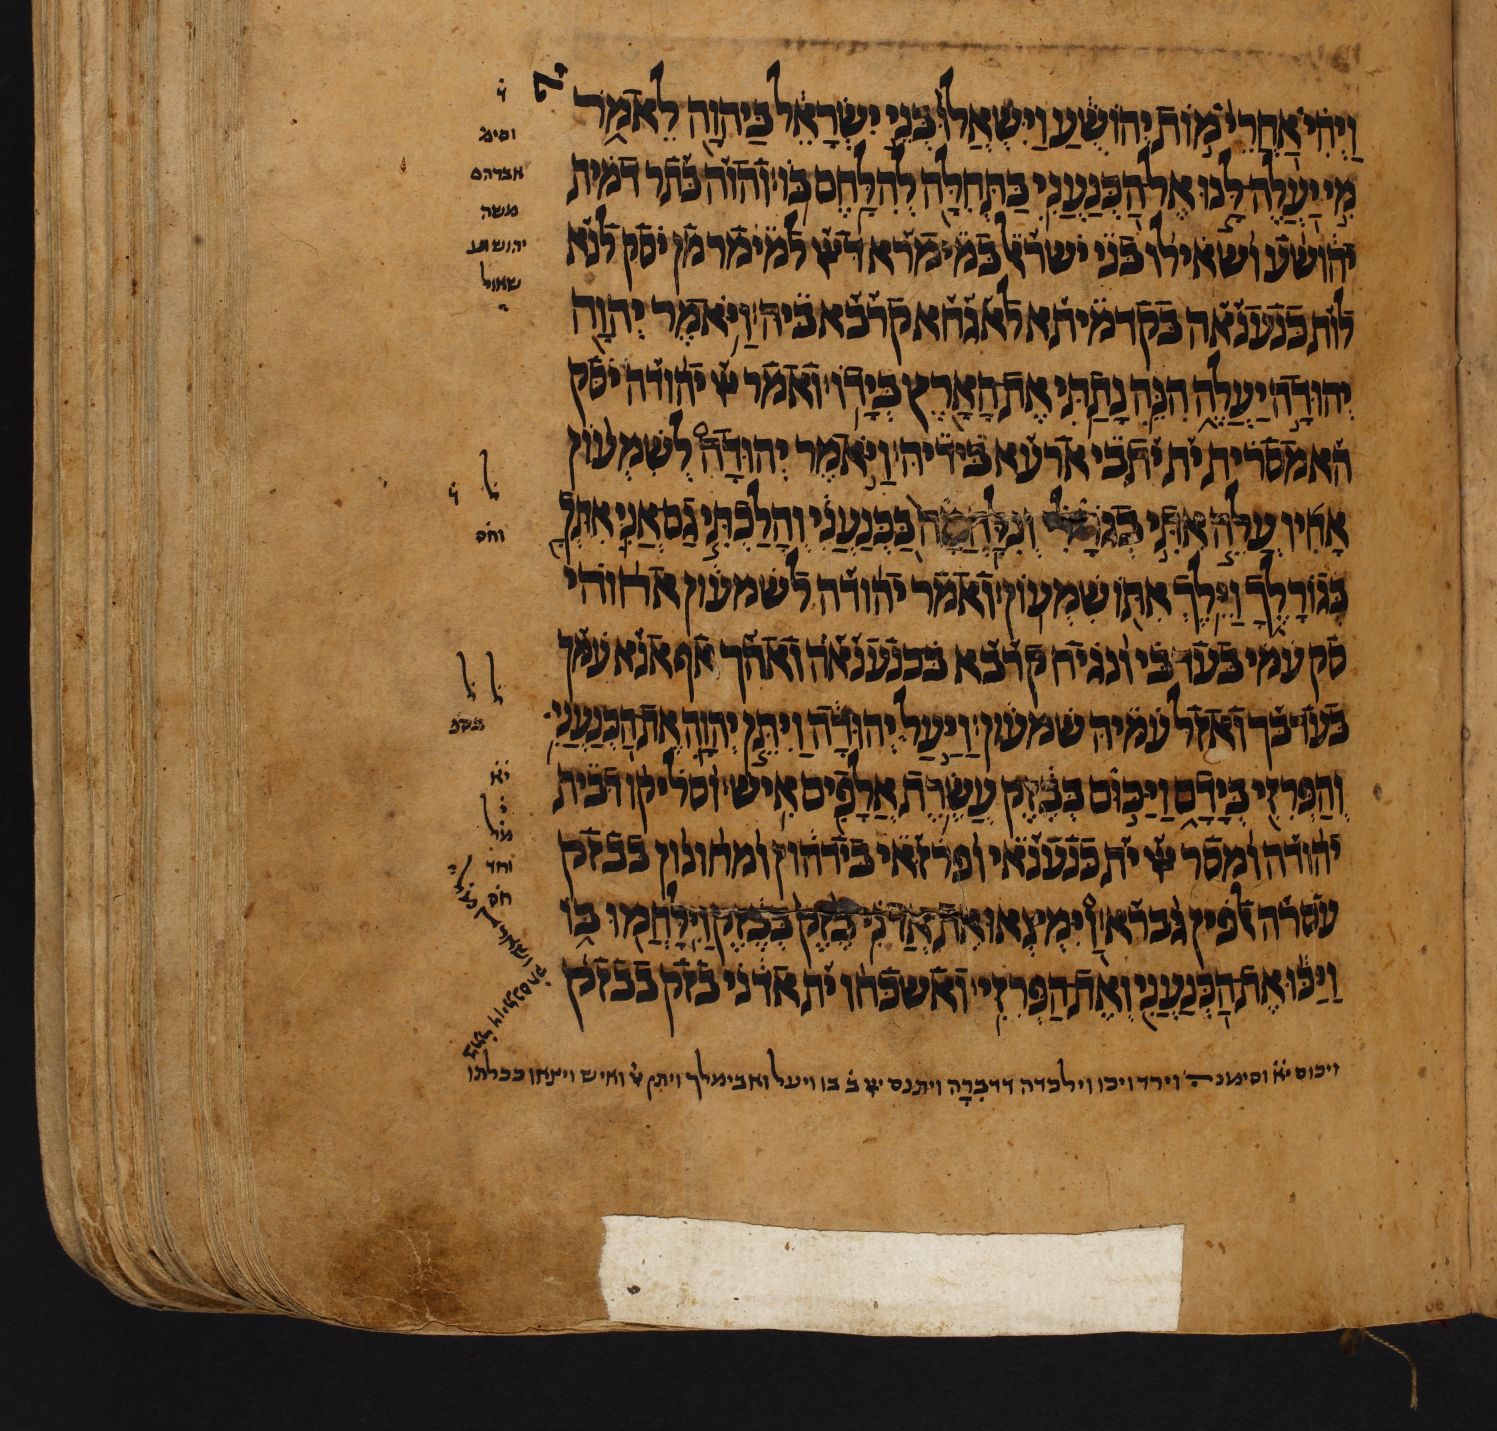 וַיְהִי אַחֲרֵי מוֹת יְהוֹשֻׁעַ וַיִּשְׁאֲלוּ בְּנֵי יִשְׂרָאֵל בַּיהוָה לֵאמֹר
מִי יַעֲלֶה לָּנוּ אֶל הַכְּנַעֲנִי בַּתְּחִלָּה לְהִלָּחֶם בּוֹ והוה בתר דמית
יהושע ושאילו בני ישראל במימרא דיי למימר מן יסק לנא
לות כנענאה בקדמיתא לאגחא קרבא ביה וַיֹּאמֶר יְהוָה
יְהוּדָה יַעֲלֶה הִנֵּה נָתַתִּי אֶת הָאָרֶץ בְּיָדוֹ ואמר יי יהודה יסק
הא מסרית ית יתבי ארעא בידיה וַיֹּאמֶר יְהוּדָה לְשִׁמְעוֹן
אָחִיו עֲלֵה אִתִּי בְגוֹרָלִי וְנִלָּחֲמָה בַּכְּנַעֲנִי וְהָלַכְתִּי גַם אֲנִי אִתְּךָ
בְּגוֹרָלֶךָ וַיֵּלֶךְ אִתּוֹ שִׁמְעוֹן ואמר יהודה לשמעון אחוהי
סק עמי בעדבי ונגיח קרבא בכנענאה ואהך אף אנא עמך
בעדבך ואזל עמיה שמעון וַיַּעַל יְהוּדָה וַיִּתֵּן יְהוָה אֶת הַכְּנַעֲנִי
וְהַפְּרִזִּי בְּיָדָם וַיַּכּוּם בְּבֶזֶק עֲשֶׂרֶת אֲלָפִים אִישׁ וסליקו דבית
יהודה ומסר יי ית כנענאי ופרזאי בידהון ומחונון בבזק
עסרה אלפין גברא וַיִּמְצְאוּ אֶת אֲדֹנִי בֶזֶק בְּבֶזֶק וַיִּלָּחֲמוּ בּוֹ
וַיַּכּוּ אֶת הַכְּנַעֲנִי וְאֶת הַפְּרִזִּי ואשכחו ית אדני בזק בבזק
ו
וסימ
אברהם
משה
יהושוע
שאול
ל
ו
וחס
ל ל
יא
מל
וחד
חס
ויכום יא וסימנ וירד ויכו וילכדה דדברה ויתנם ב בו ויעל ואבימלך ויתן ואיש ויצאו ככלתו